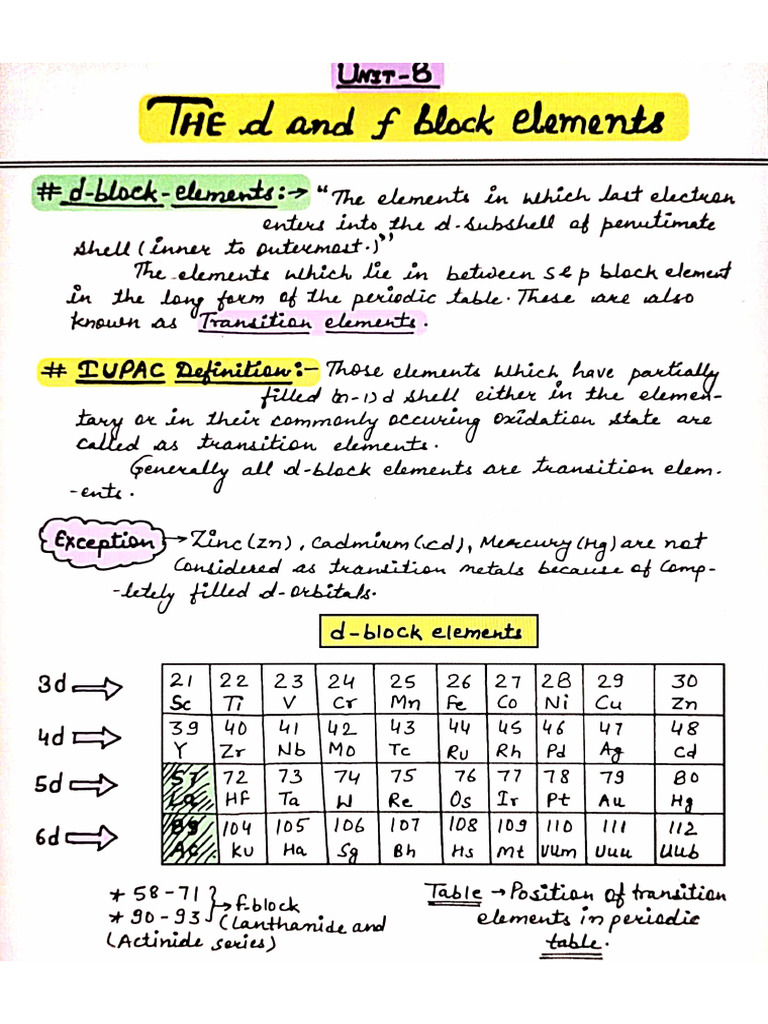 UNIT-8
THE d and f block elements
# d-block-elements:→ "The elements in which last electron
enters into the d-subshell of penutimate
shell (inner to outermost.)"
The elements which lie in between s & p block element
in the long form of the periodic table. These are also
known as Transition elements.
# IUPAC Definition:- Those elements which have partially
filled (n-1)d shell either in the elemen-
tary or in their commonly occuring oxidation state are
called as transition elements.
Generally all d-block elements are transition elem-
-ents.
Exception → Zinc(Zn), Cadmium(Cd), Mercury(Hg) are not
Considered as transition metals because of Comp-
-letely filled d-orbitals.
d-block elements
3d ⇒ 21 22 23 24 25 26 27 28 29 30
Sc Ti V Cr Mn Fe Co Ni Cu Zn
4d ⇒ 39 40 41 42 43 44 45 46 47 48
Y Zr Nb Mo Tc Ru Rh Pd Ag Cd
5d ⇒ 57 72 73 74 75 76 77 78 79 80
La HF Ta W Re Os Ir Pt Au Hg
6d ⇒ 89 104 105 106 107 108 109 110 111 112
Ac Ku Ha Sg Bh Hs Mt UUm Uuu Uub
* 58-71 } → f-block
* 90-93 (Lanthamide and
(Actinide series)
Table → Position of transition
elements in periodic
table.